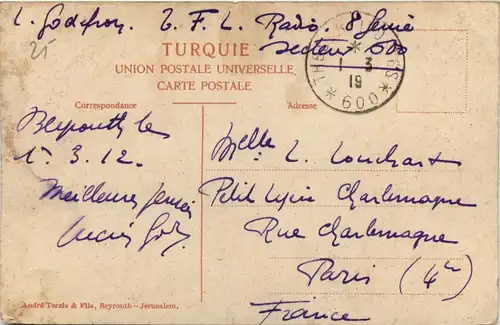 L. Godfroy. T. F. L. Radio. 8e Génie
Secteur 600
25
TURQUIE
UNION POSTALE UNIVERSELLE.
CARTE POSTALE
TRÉSOR ET POSTES
1 3
19
* 600 *
Correspondance
Adresse
Beyrouth le
1. 3. 12.
Meilleures pensées
Lucien God
Melle L. Louchart
Petit Lycée Charlemagne
Rue Charlemagne
Paris (4e)
France
André Terzis & Fils, Beyrouth-Jerusalem.